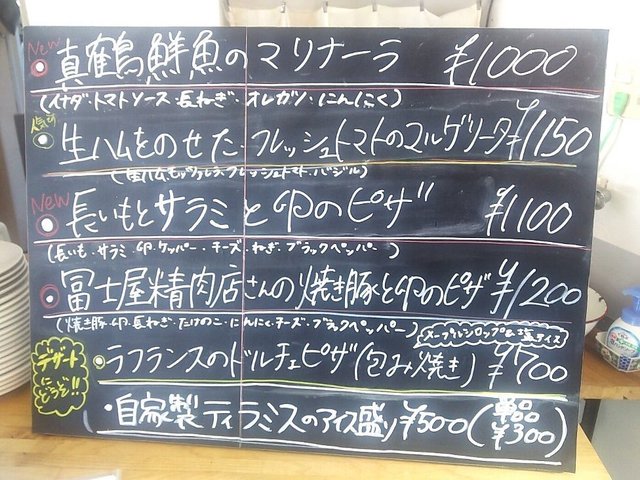 New 真鶴鮮魚のマリナーラ ¥1000
(イナダ・トマトソース・長ねぎ・オレガノ・にんにく)
人気 生ハムをのせたフレッシュトマトのマルゲリータ ¥1150
(生ハム・モッツァレラ・フレッシュトマト・バジル)
New 長いもとサラミと卵のピザ ¥1100
(長いも・サラミ・卵・ケッパー・チーズ・ねぎ・ブラックペッパー)
冨士屋精肉店さんの焼き豚と卵のピザ ¥1200
(焼き豚・卵・長ねぎ・たけのこ・にんにく・チーズ・ブラックペッパー)
メープルシロップ&塩アイス
デザートにどうぞ!!
ラフランスのドルチェピザ(包み焼き) ¥700
・自家製ティラミスのアイス盛り ¥500 (単品 ¥300)